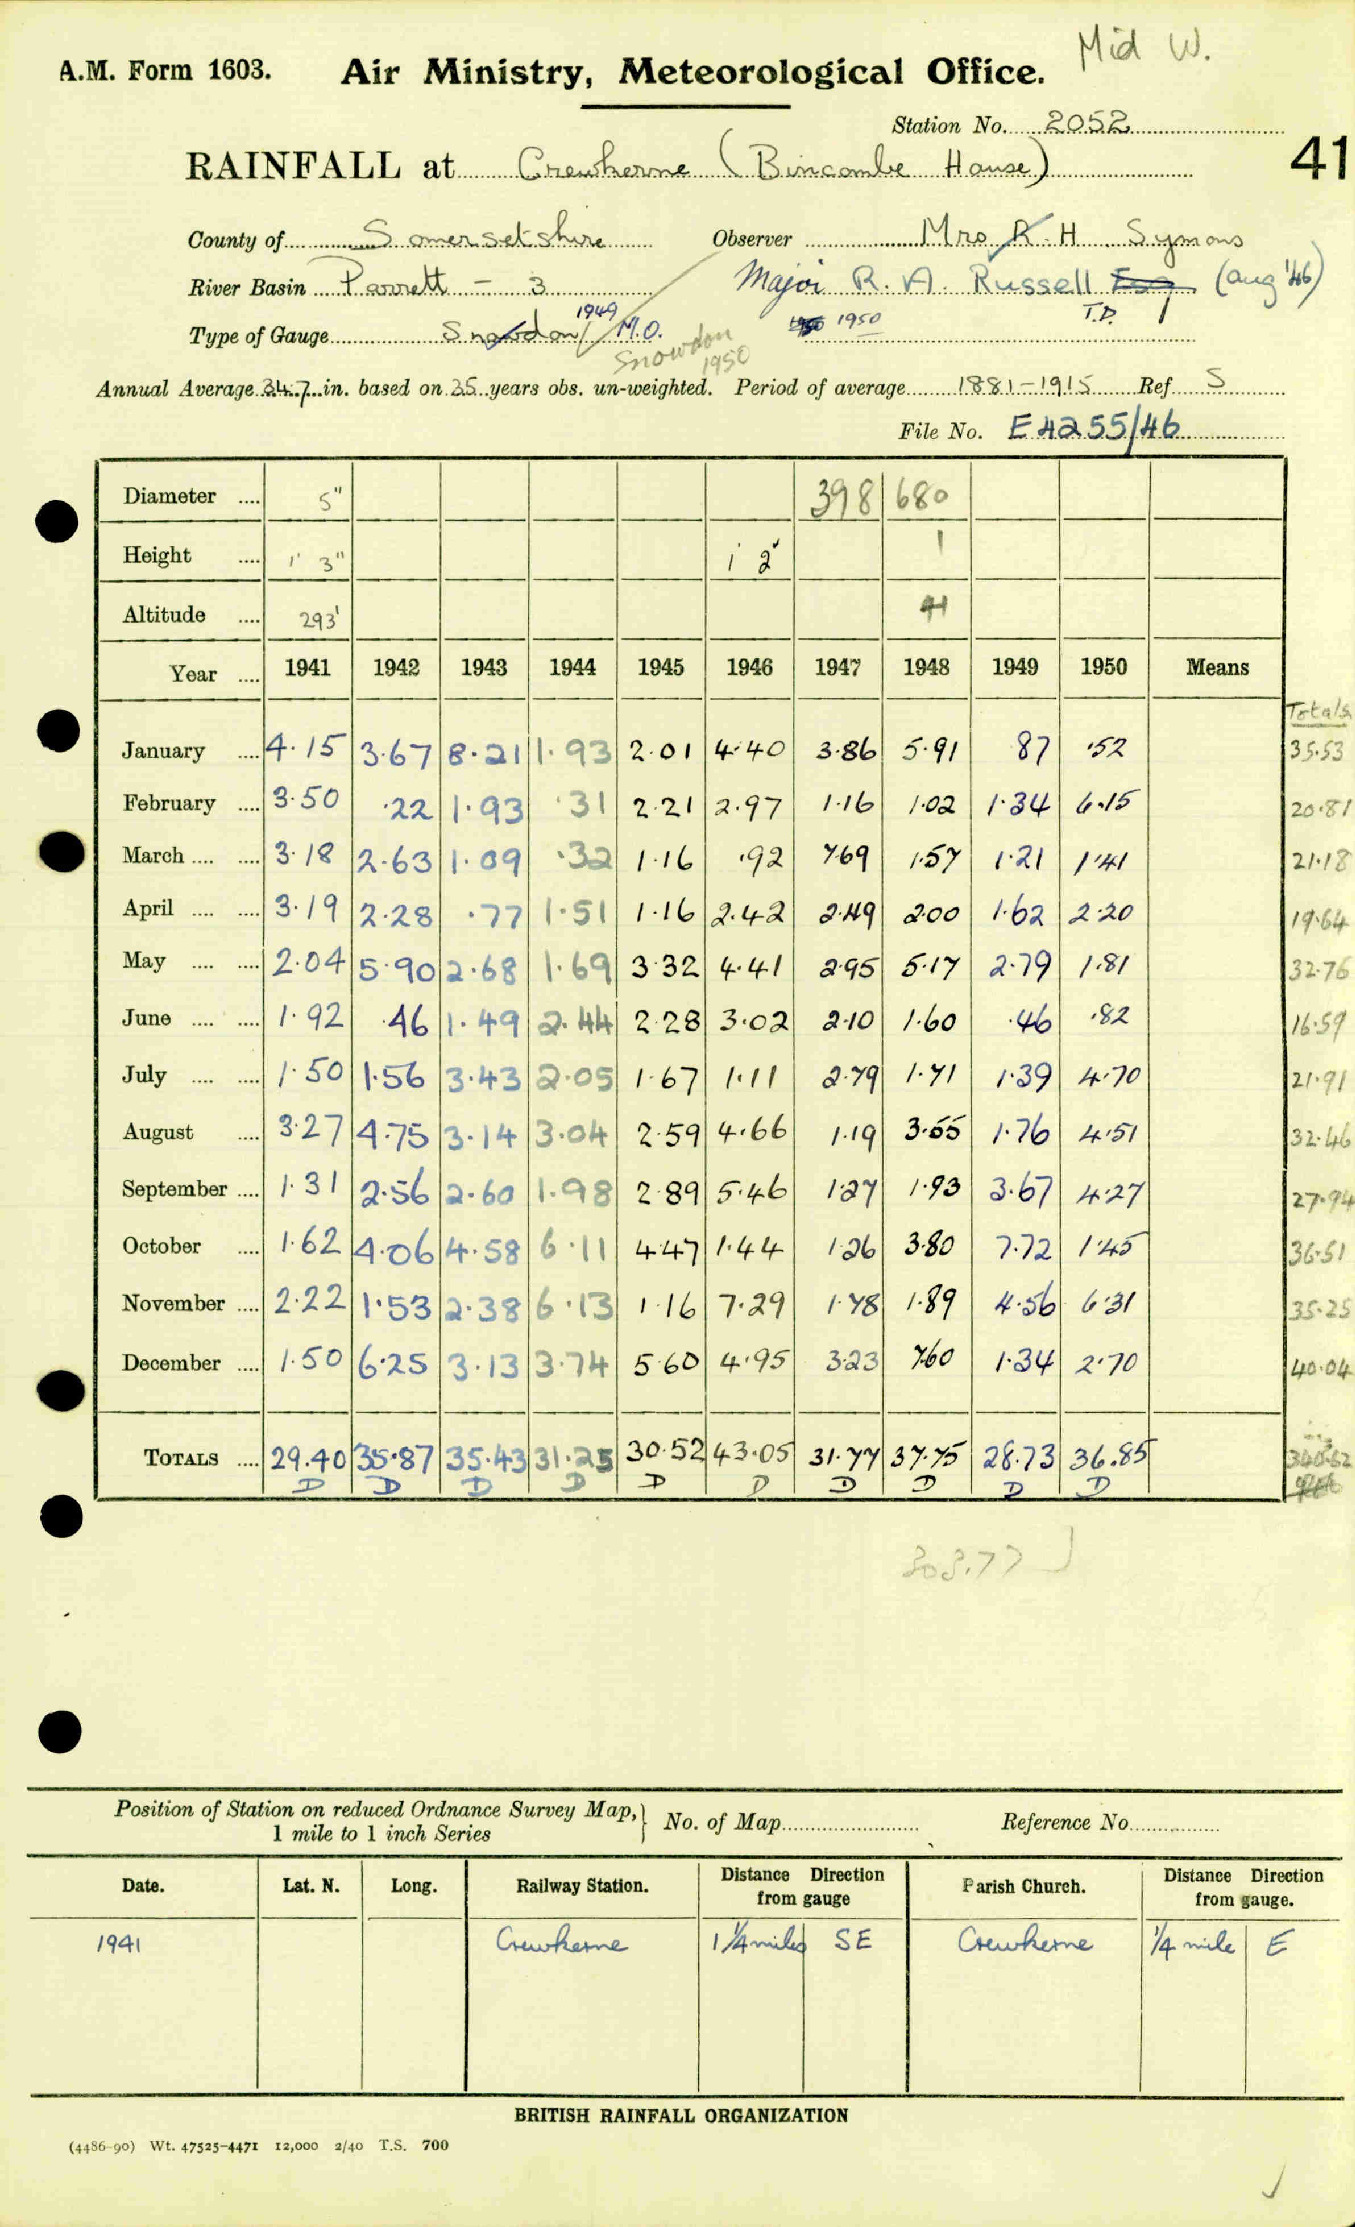 Mid W.
A.M. Form 1603. Air Ministry, Meteorological Office.
Station No. 2052
41
RAINFALL at Crewkerne (Bincombe House)
County of Somersetshire Observer Mrs R. H Symons
River Basin Parrett - 3 Major R. A. Russell Esq (Aug '46)
T.D.
1949 1950 1950
Type of Gauge Snowdon / M.O.
Snowdon 1950
Annual Average 34.7 in. based on 35 years obs. un-weighted. Period of average 1881-1915 Ref S
File No. E4255/46
Diameter .... 5" 398 680
Height .... 1' 3" 1 2" 1
Altitude .... 293' 41
Year .... 1941 1942 1943 1944 1945 1946 1947 1948 1949 1950 Means
Totals
January .... 4.15 3.67 8.21 1.93 2.01 4.40 3.86 5.91 .87 .52 35.53
February .... 3.50 .22 1.93 .31 2.21 2.97 1.16 1.02 1.34 6.15 20.81
March .... .... 3.18 2.63 1.09 .32 1.16 .92 7.69 1.57 1.21 1.41 21.18
April .... .... 3.19 2.28 .77 1.51 1.16 2.42 2.49 2.00 1.62 2.20 19.64
May .... .... 2.04 5.90 2.68 1.69 3.32 4.41 2.95 5.17 2.79 1.81 32.76
June .... .... 1.92 .46 1.49 2.44 2.28 3.02 2.10 1.60 .46 .82 16.59
July .... .... 1.50 1.56 3.43 2.05 1.67 1.11 2.79 1.71 1.39 4.70 21.91
August .... 3.27 4.75 3.14 3.04 2.59 4.66 1.19 3.55 1.76 4.51 32.46
September .... 1.31 2.56 2.60 1.98 2.89 5.46 1.27 1.93 3.67 4.27 27.94
October .... 1.62 4.06 4.58 6.11 4.47 1.44 1.26 3.80 7.72 1.45 36.51
November .... 2.22 1.53 2.38 6.13 1.16 7.29 1.78 1.89 4.56 6.31 35.25
December .... 1.50 6.25 3.13 3.74 5.60 4.95 3.23 7.60 1.34 2.70 40.04
TOTALS .... 29.40 35.87 35.43 31.25 30.52 43.05 31.77 37.75 28.73 36.85 340.62
D D D D D D D D D D
303.77
Position of Station on reduced Ordnance Survey Map, 1 mile to 1 inch Series } No. of Map Reference No.
Date. Lat. N. Long. Railway Station. Distance Direction from gauge Parish Church. Distance Direction from gauge.
1941 Crewkerne 1 1/4 miles SE Crewkerne 1/4 mile E
BRITISH RAINFALL ORGANIZATION
(4486-90) Wt. 47525-4471 12,000 2/40 T.S. 700